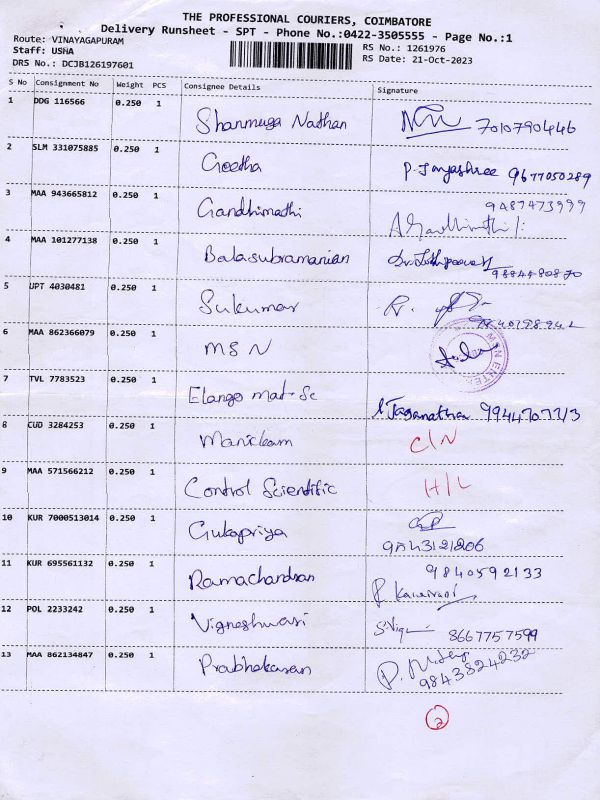 THE PROFESSIONAL COURIERS, COIMBATORE
Delivery Runsheet - SPT - Phone No.:0422-3505555 - Page No.:1
Route: VINAYAGAPURAM
Staff: USHA
DRS No.: DCJB126197601
RS No.: 1261976
RS Date: 21-Oct-2023
S No Consignment No Weight PCS Consignee Details Signature
1 DDG 116566 0.250 1 Shanmuga Nathan 7010790446
2 SLM 331075885 0.250 1 Geetha P. Jayashree 9677050289
3 MAA 943665812 0.250 1 Gandhimathi 9487473999
4 MAA 101277138 0.250 1 Balasubramanian
5 UPT 4030481 0.250 1 Sukumar
6 MAA 862366079 0.250 1 MSN
7 TVL 7783523 0.250 1 Elango mat-Sc
8 CUD 3284253 0.250 1 Manickam C/N
9 MAA 571566212 0.250 1 Control Scientific H/L
10 KUR 7000513014 0.250 1
9843121206
11 KUR 695561132 0.250 1 Ramachandran 9840592133
12 POL 2233242 0.250 1 Vigneshwari 8667757599
13 MAA 862134847 0.250 1 Prabhakaran
9843824232
2